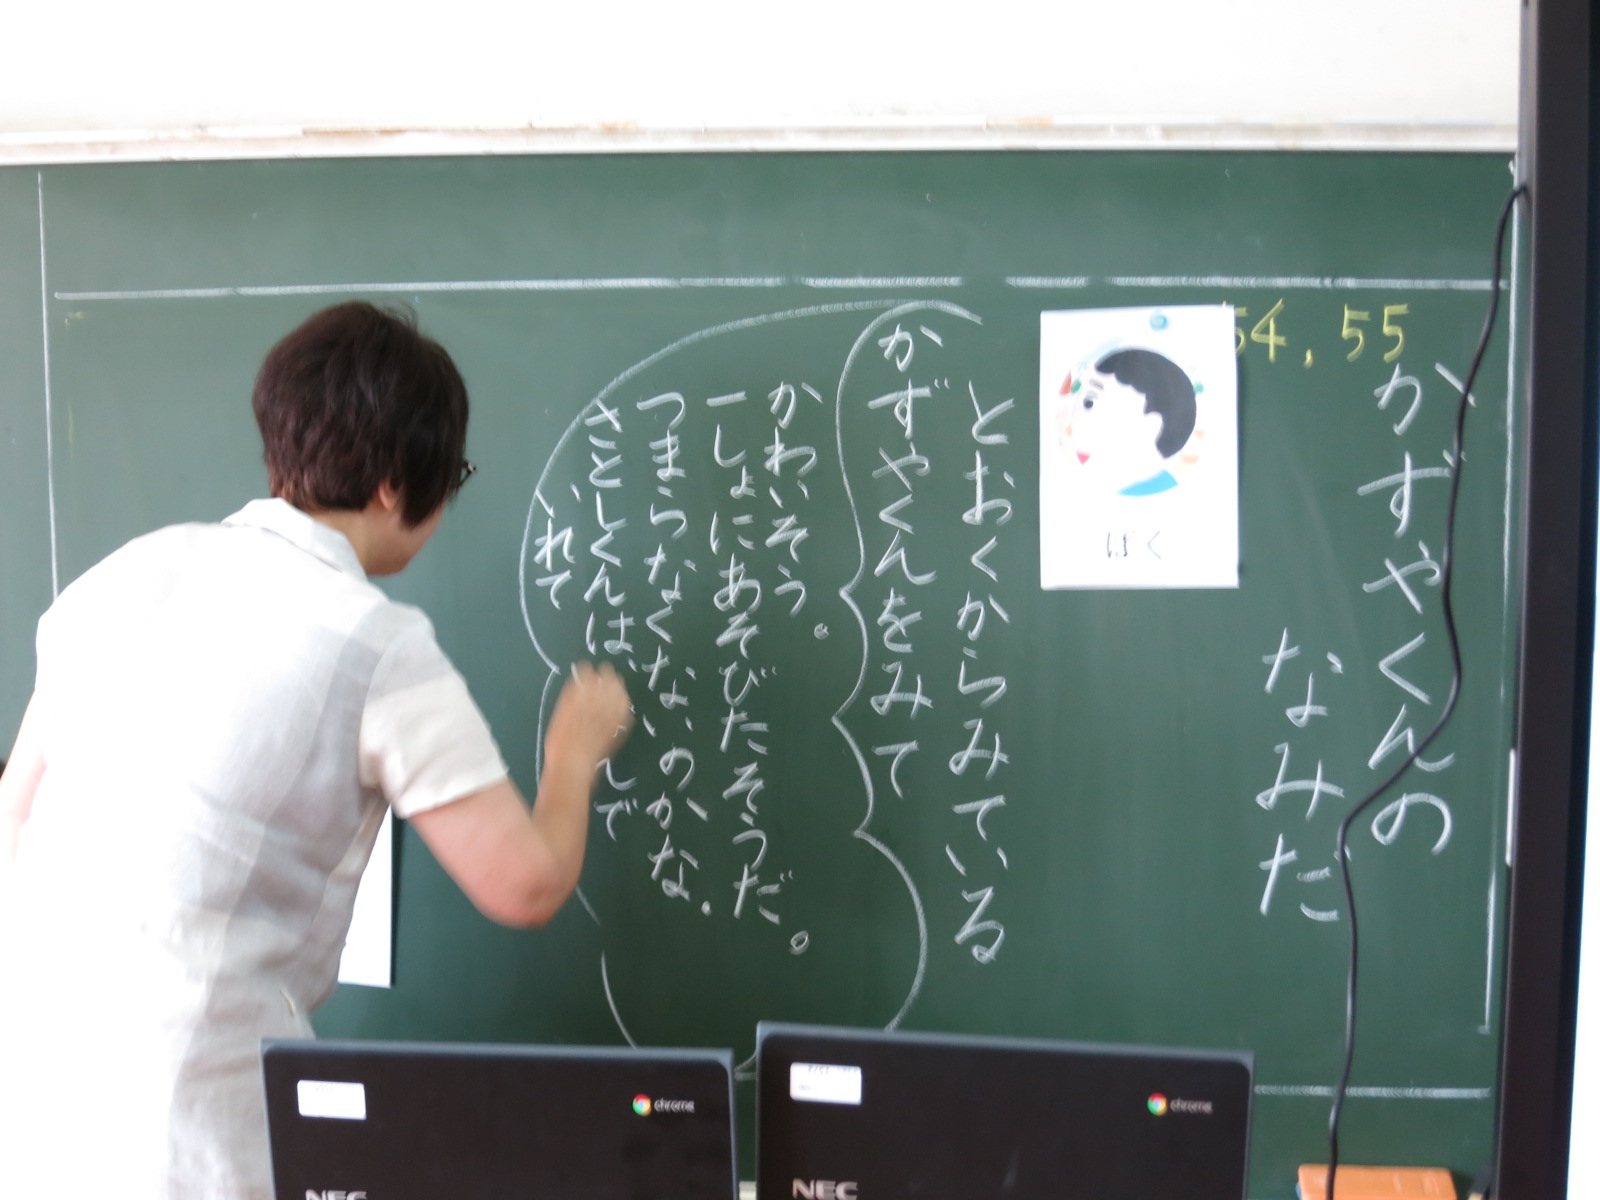 54, 55
かずやくんの
なみだ
ぼく
とおくからみている
かずやくんをみて
かわいそう。
一しょにあそびたそうだ。
つまらなくないのかな。
さとしくんは、
んで
いれて
chrome
NEC
chrome
NEC